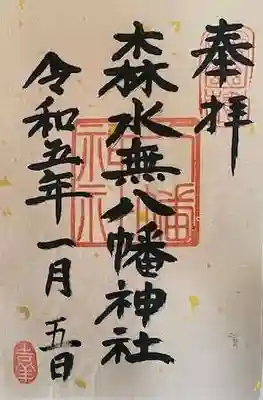 奉拝
森水無八幡神社
令和五年一月五日